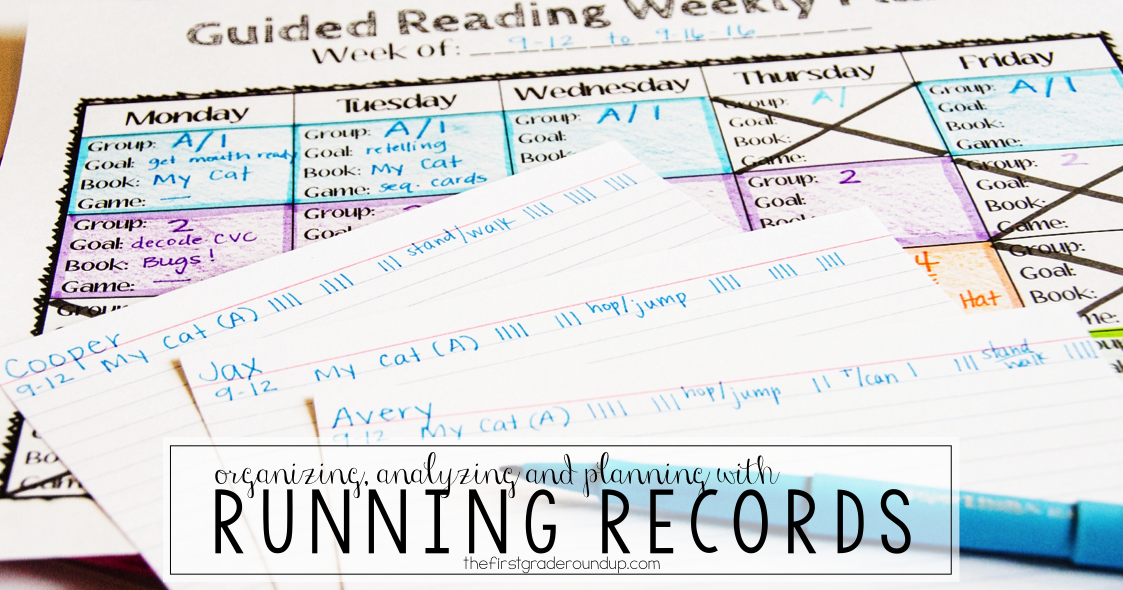 Guided Reading Weekly
Week of: 9-12 to 9-16-16
Monday Tuesday Wednesday Thursday Friday
Group: A/1
Goal: get mouth ready
Book: My Cat
Game: —
Group: A/1
Goal: retelling
Book: My Cat
Game: seq. cards
Group: A/1
Goal:
Book:
Group: A/
Goal:
Book:
Game:
Group: A/1
Goal:
Book:
Game:
Group: 2
Goal: decode CVC
Book: Bugs!
Game: —
Group:
Goal:
Group: 2
Goal:
Book:
Group: 2
Goal:
Book:
Game:
4
Hat
Group:
Goal:
Book:
Cooper
9-12 My cat (A) |||| |||| ||| stand/walk |||| ||||
||||
Jax
9-12 My cat (A) |||| ||| hop/jump |||| |||| ||||
Avery
9-12 My cat (A) |||| ||| hop/jump || +/can | ||| stand walk ||||
organizing, analyzing and planning with
RUNNING RECORDS
thefirstgraderoundup.com